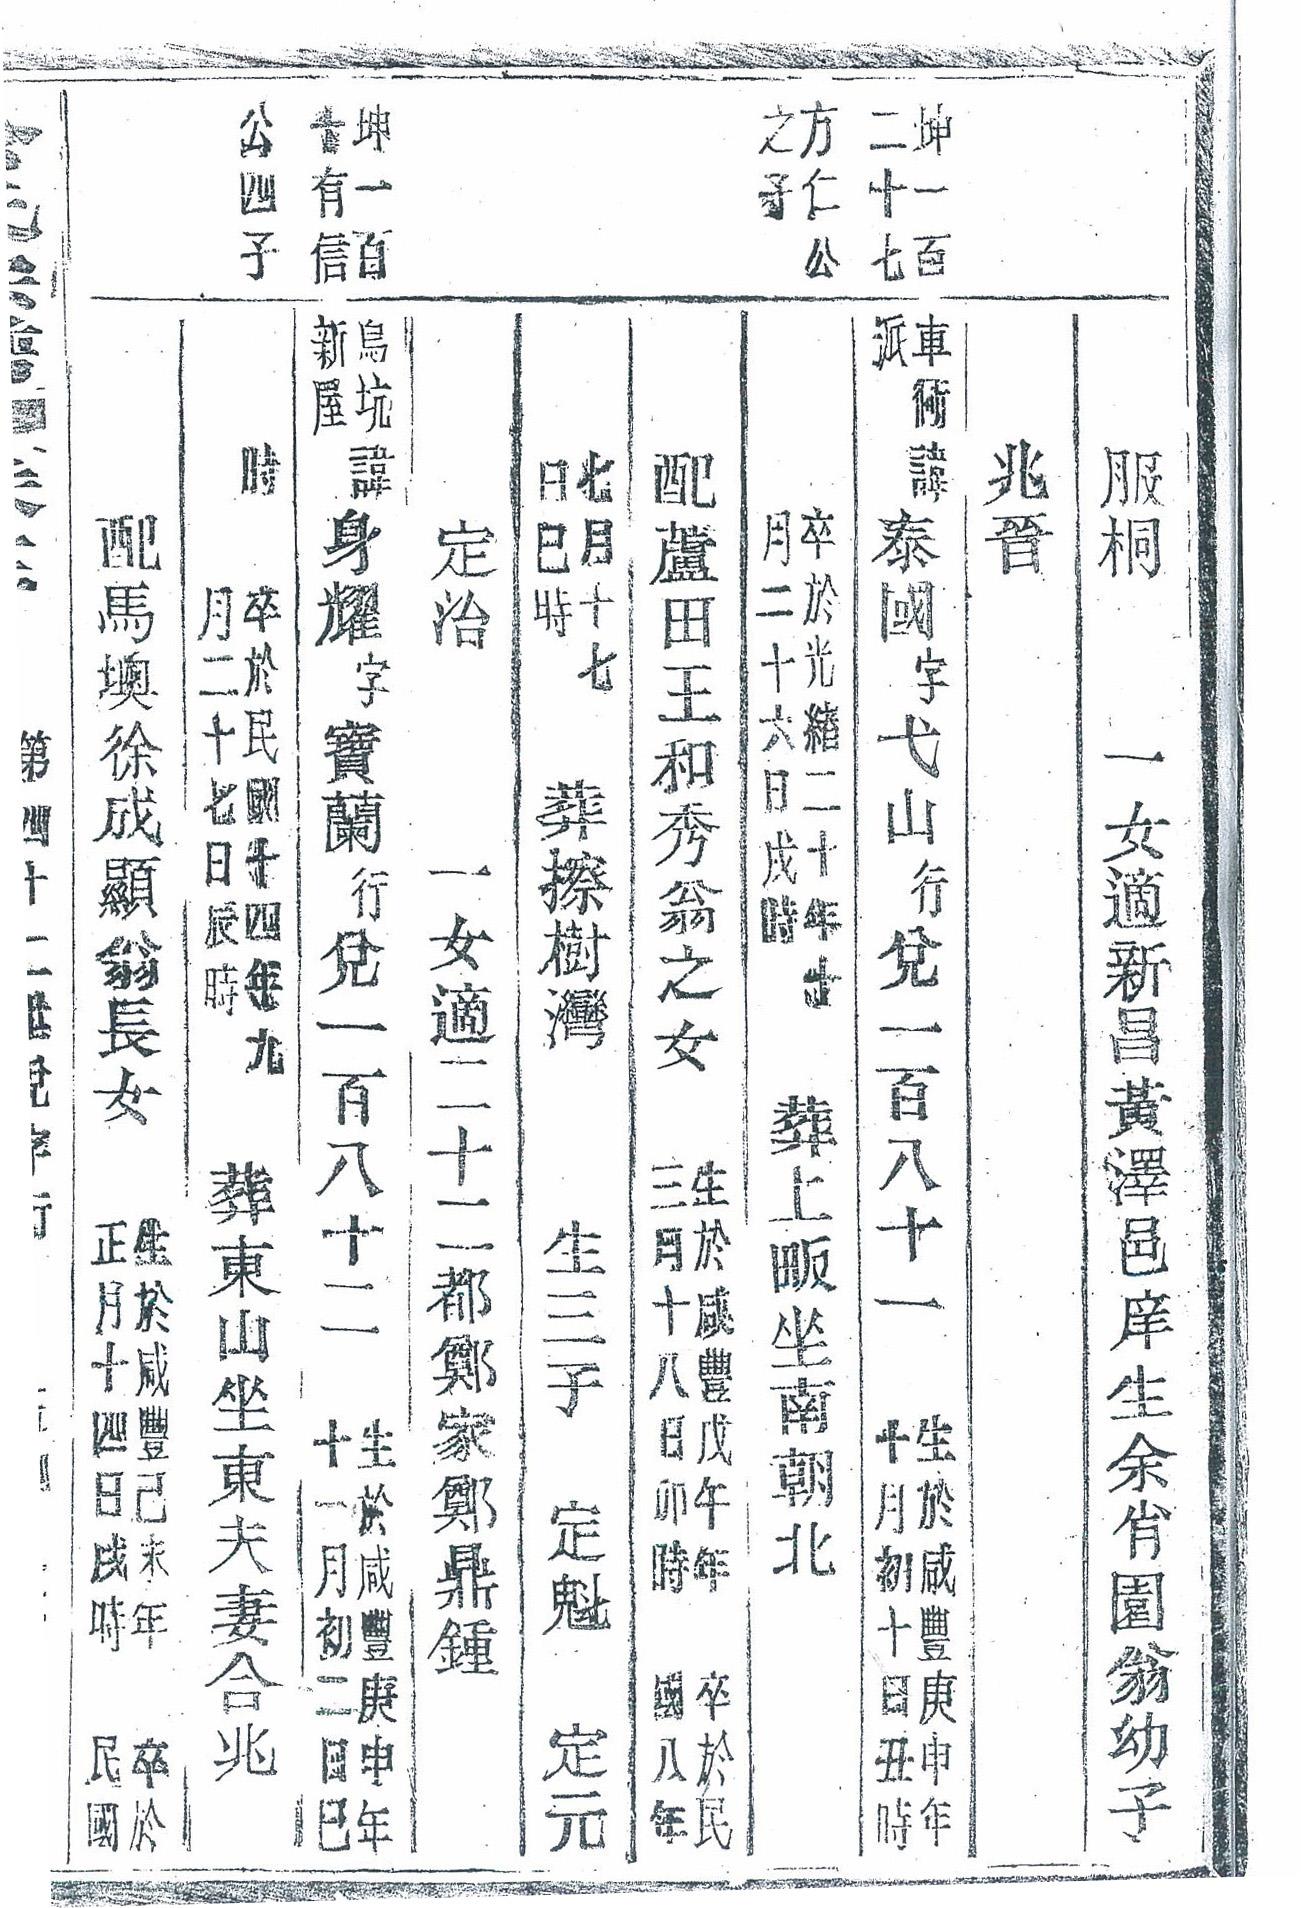 服桐　一女適新昌黃澤邑庠生余肖園翁幼子
兆晉
坤一百
二十七
方仁公
之子
車衕
派
諱泰國字弋山行兌一百八十一
生於咸豐庚申年
十月初十日丑時
卒於光緒二十年十
月二十六日戌時
葬上畈坐南朝北
配蘆田王和秀翁之女
生於咸豐戊午年
三月十八日卯時
卒於民
國八年
七月十七
日巳時
葬擦樹灣　生三子　定魁　定元
定治　一女適二十二都鄭家鄭鼎鍾
坤一百
十有信
公四子
烏坑
新屋
諱身耀字寶蘭行兌一百八十二
生於咸豐庚申年
十一月初二日巳
時
卒於民國十四年九
月二十七日辰時
葬東山坐東夫妻合兆
配馬墺徐成顯翁長女
生於咸豐己未年
正月十四日戌時
卒於
民國
第四十二世兌字行